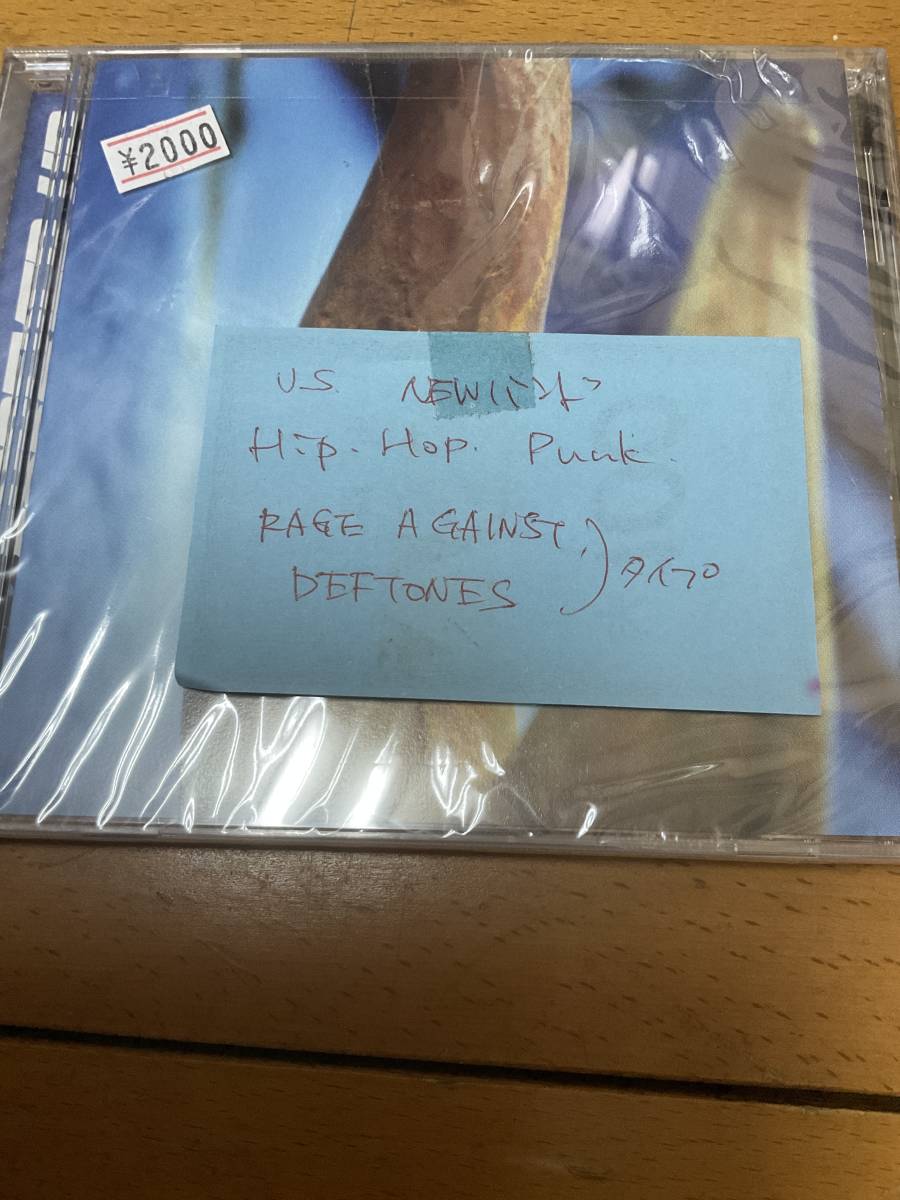 ¥2000
U.S. NEWバンド
Hip.Hop. Punk.
RAGE AGAINST,
DEFTONES ) タイプ